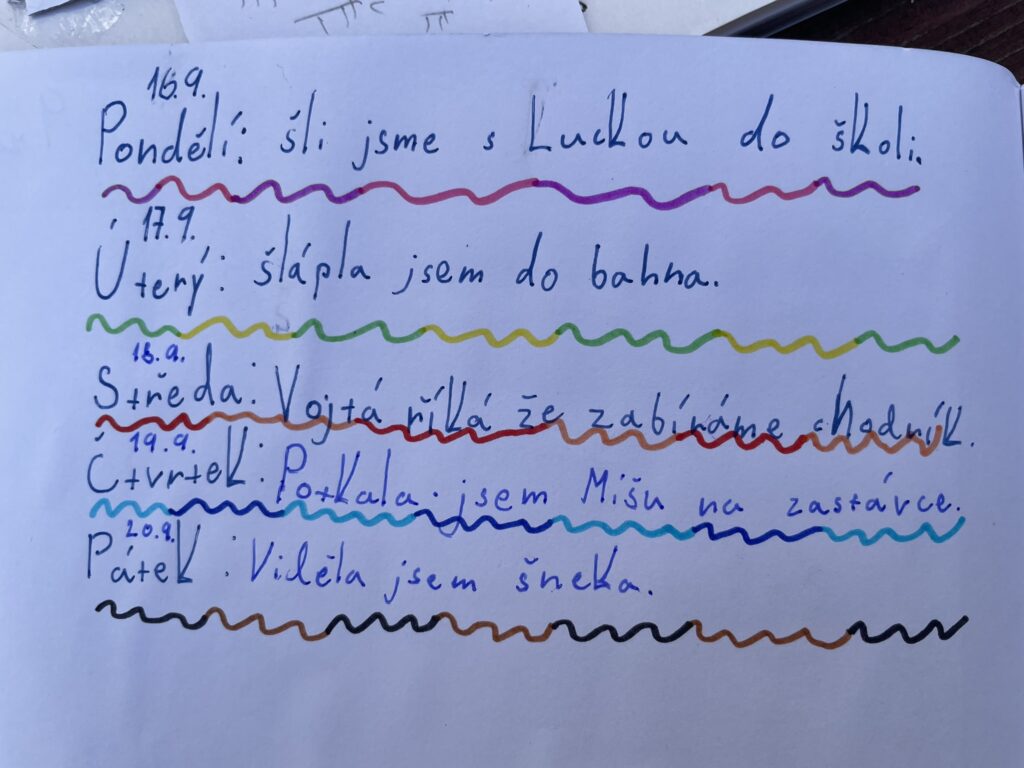 16.9.
Pondělí: šli jsme s Luckou do školi.
17.9.
Úterý: šlápla jsem do bahna.
18.9.
Středa: Vojtá říká že zabíráme chodník.
19.9.
Čtvrtek: Potkala jsem Míšu na zastávce.
20.9.
Pátek: Viděla jsem šneka.